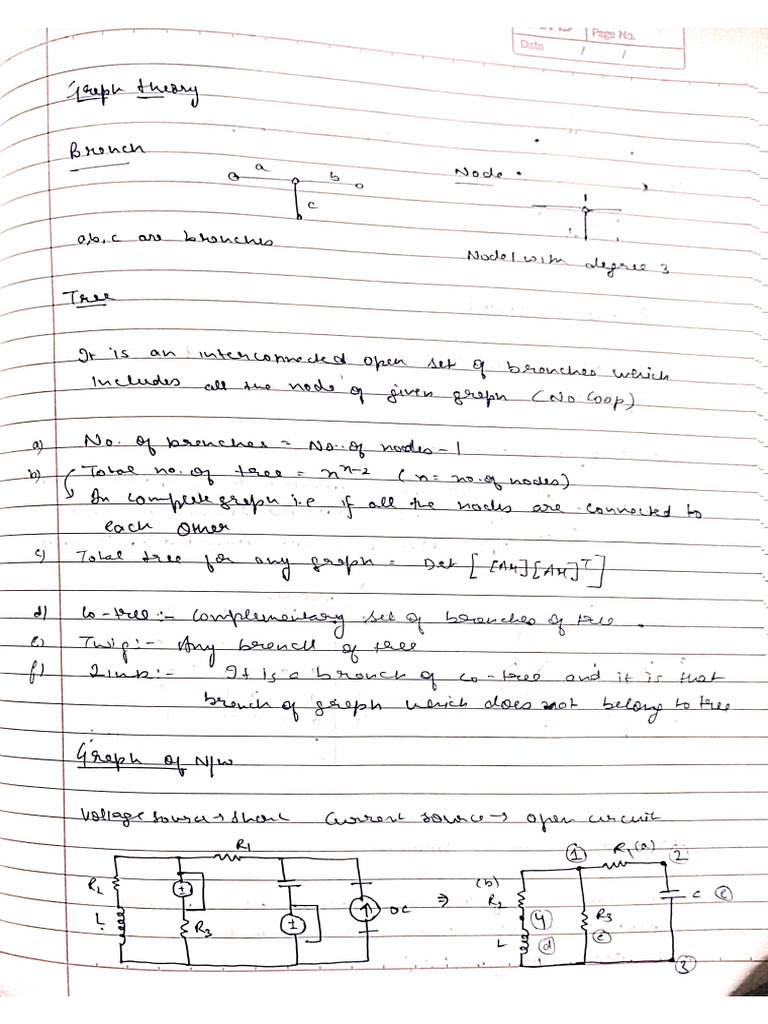 Page No.
Date / /
Graph theory
Branch
a b
c
Node
a,b,c are branches
Node 1 with degree 3
Tree
It is an interconnected open set of branches which
includes all the node of given graph (No loop)
a) No. of branches = No. of nodes - 1
b) Total no. of tree = n^(n-2) (n = no. of nodes)
In complete graph i.e if all the nodes are connected to
each other
c) Total tree for any graph = Det [ [AM][AM]^T ]
d) Co-tree :- complementary set of branches of tree.
e) Twig :- Any branch of tree
f) Link :- It is a branch of co-tree and it is that
branch of graph which does not belong to tree
Graph of N/w
Voltage source → short Current source → open circuit
R1
R2
L
±
R3
±
OC
⇒
(b)
R2
4
L
d
1
R1 (a)
2
R3
e
C
c
3